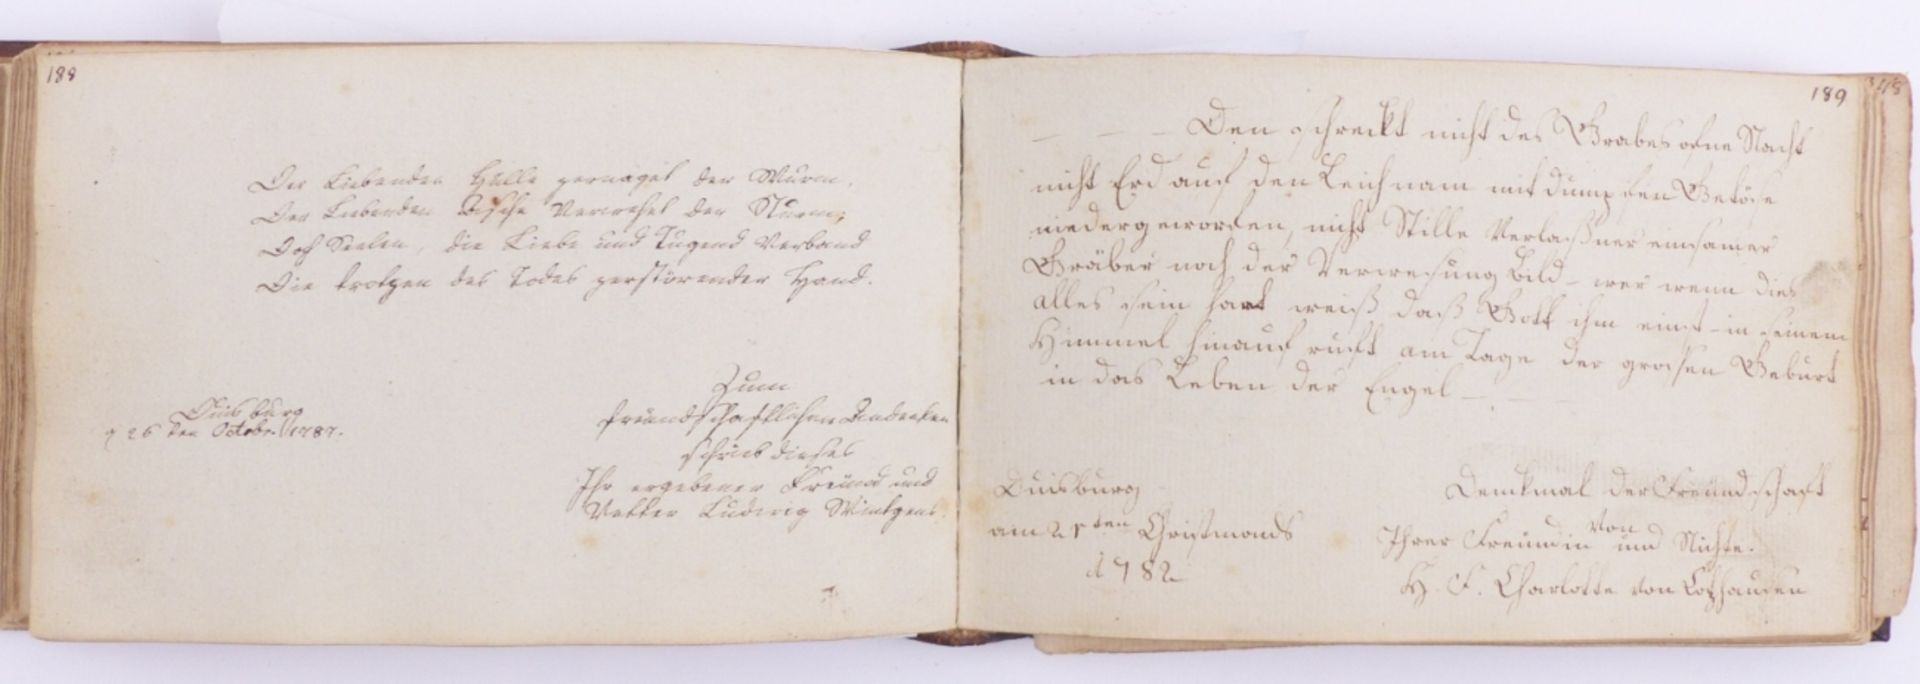 188
Der Liebenden Hülle zernaget der Wurm,
Der Liebenden Asche verwehet der Sturm;
Doch Seelen, die Liebe und Tugend verband
Die trotzen des Todes zerstörender Hand.
Zum
freündschaftlichen Andenken
schrieb dieses
Ihr ergebener Freünd und
Vetter Ludwig Wintgens.
Duisburg
26 ten Octobr. 1787.
189
348
– – – Den schreckt nicht des Grabes ofne Nacht
nicht Erd auf den Leichnam mit dumpfen Getöse
niedergeworfen, nicht Stille verlaßner einsamer
Gräber noch der Verwesung Bild – wer wenn dies
alles sein harrt weiß daß Gott ihn einst – in seinem
Himmel hinauf ruft am Tage der grosen Geburt
in das Leben der Engel – – –
Duisburg
am 21ten Christmonds
1782
Denkmal der Freundschaft
von
Ihrer Freundin und Nichte.
H. F. Charlotte von